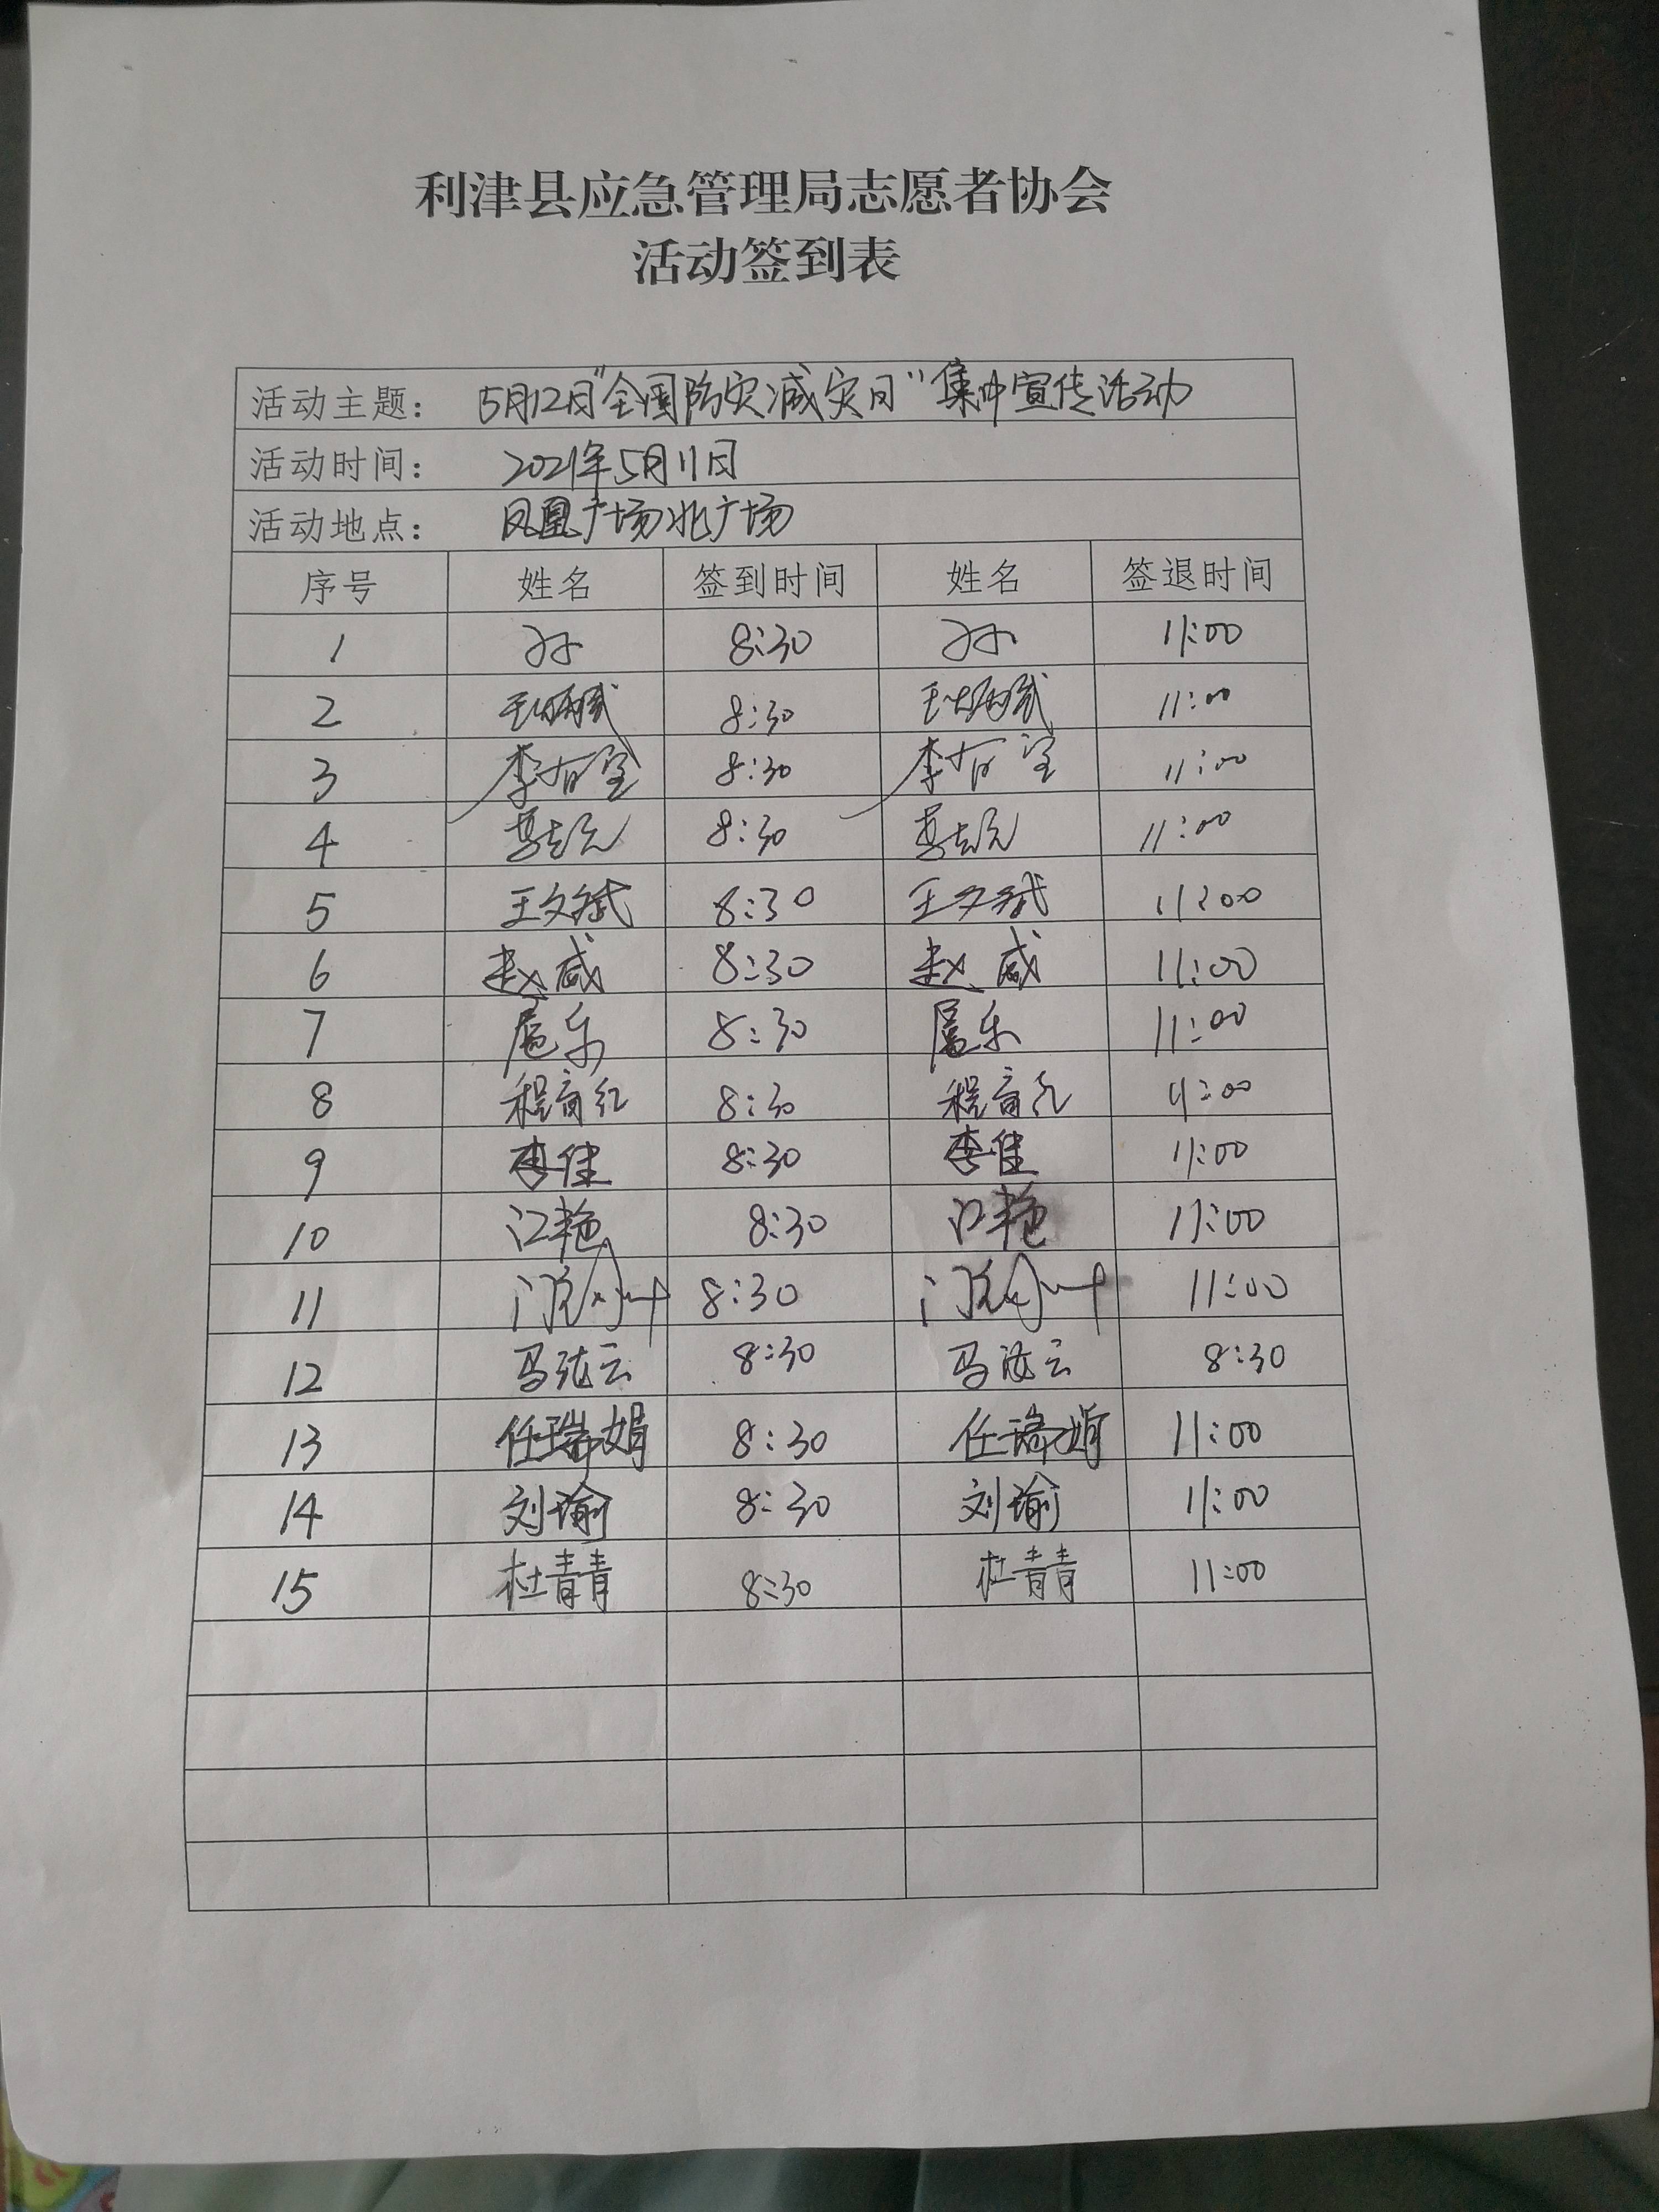 利津县应急管理局志愿者协会
活动签到表
活动主题： 5月12日"全国防灾减灾日"集中宣传活动
活动时间： 2021年5月11日
活动地点： 凤凰广场北广场
序号 姓名 签到时间 姓名 签退时间
1 8:30 11:00
2 8:30 11:00
3 8:30 11:00
4 8:30 11:00
5 王文斌 8:30 王文斌 11:00
6 赵威 8:30 赵威 11:00
7 扈乐 8:30 扈乐 11:00
8 8:30 11:00
9 李佳 8:30 李佳 11:00
10 江艳 8:30 江艳 11:00
11 8:30 11:00
12 8:30 8:30
13 任瑞娟 8:30 任瑞娟 11:00
14 刘瑜 8:30 刘瑜 11:00
15 杜青青 8:30 杜青青 11:00